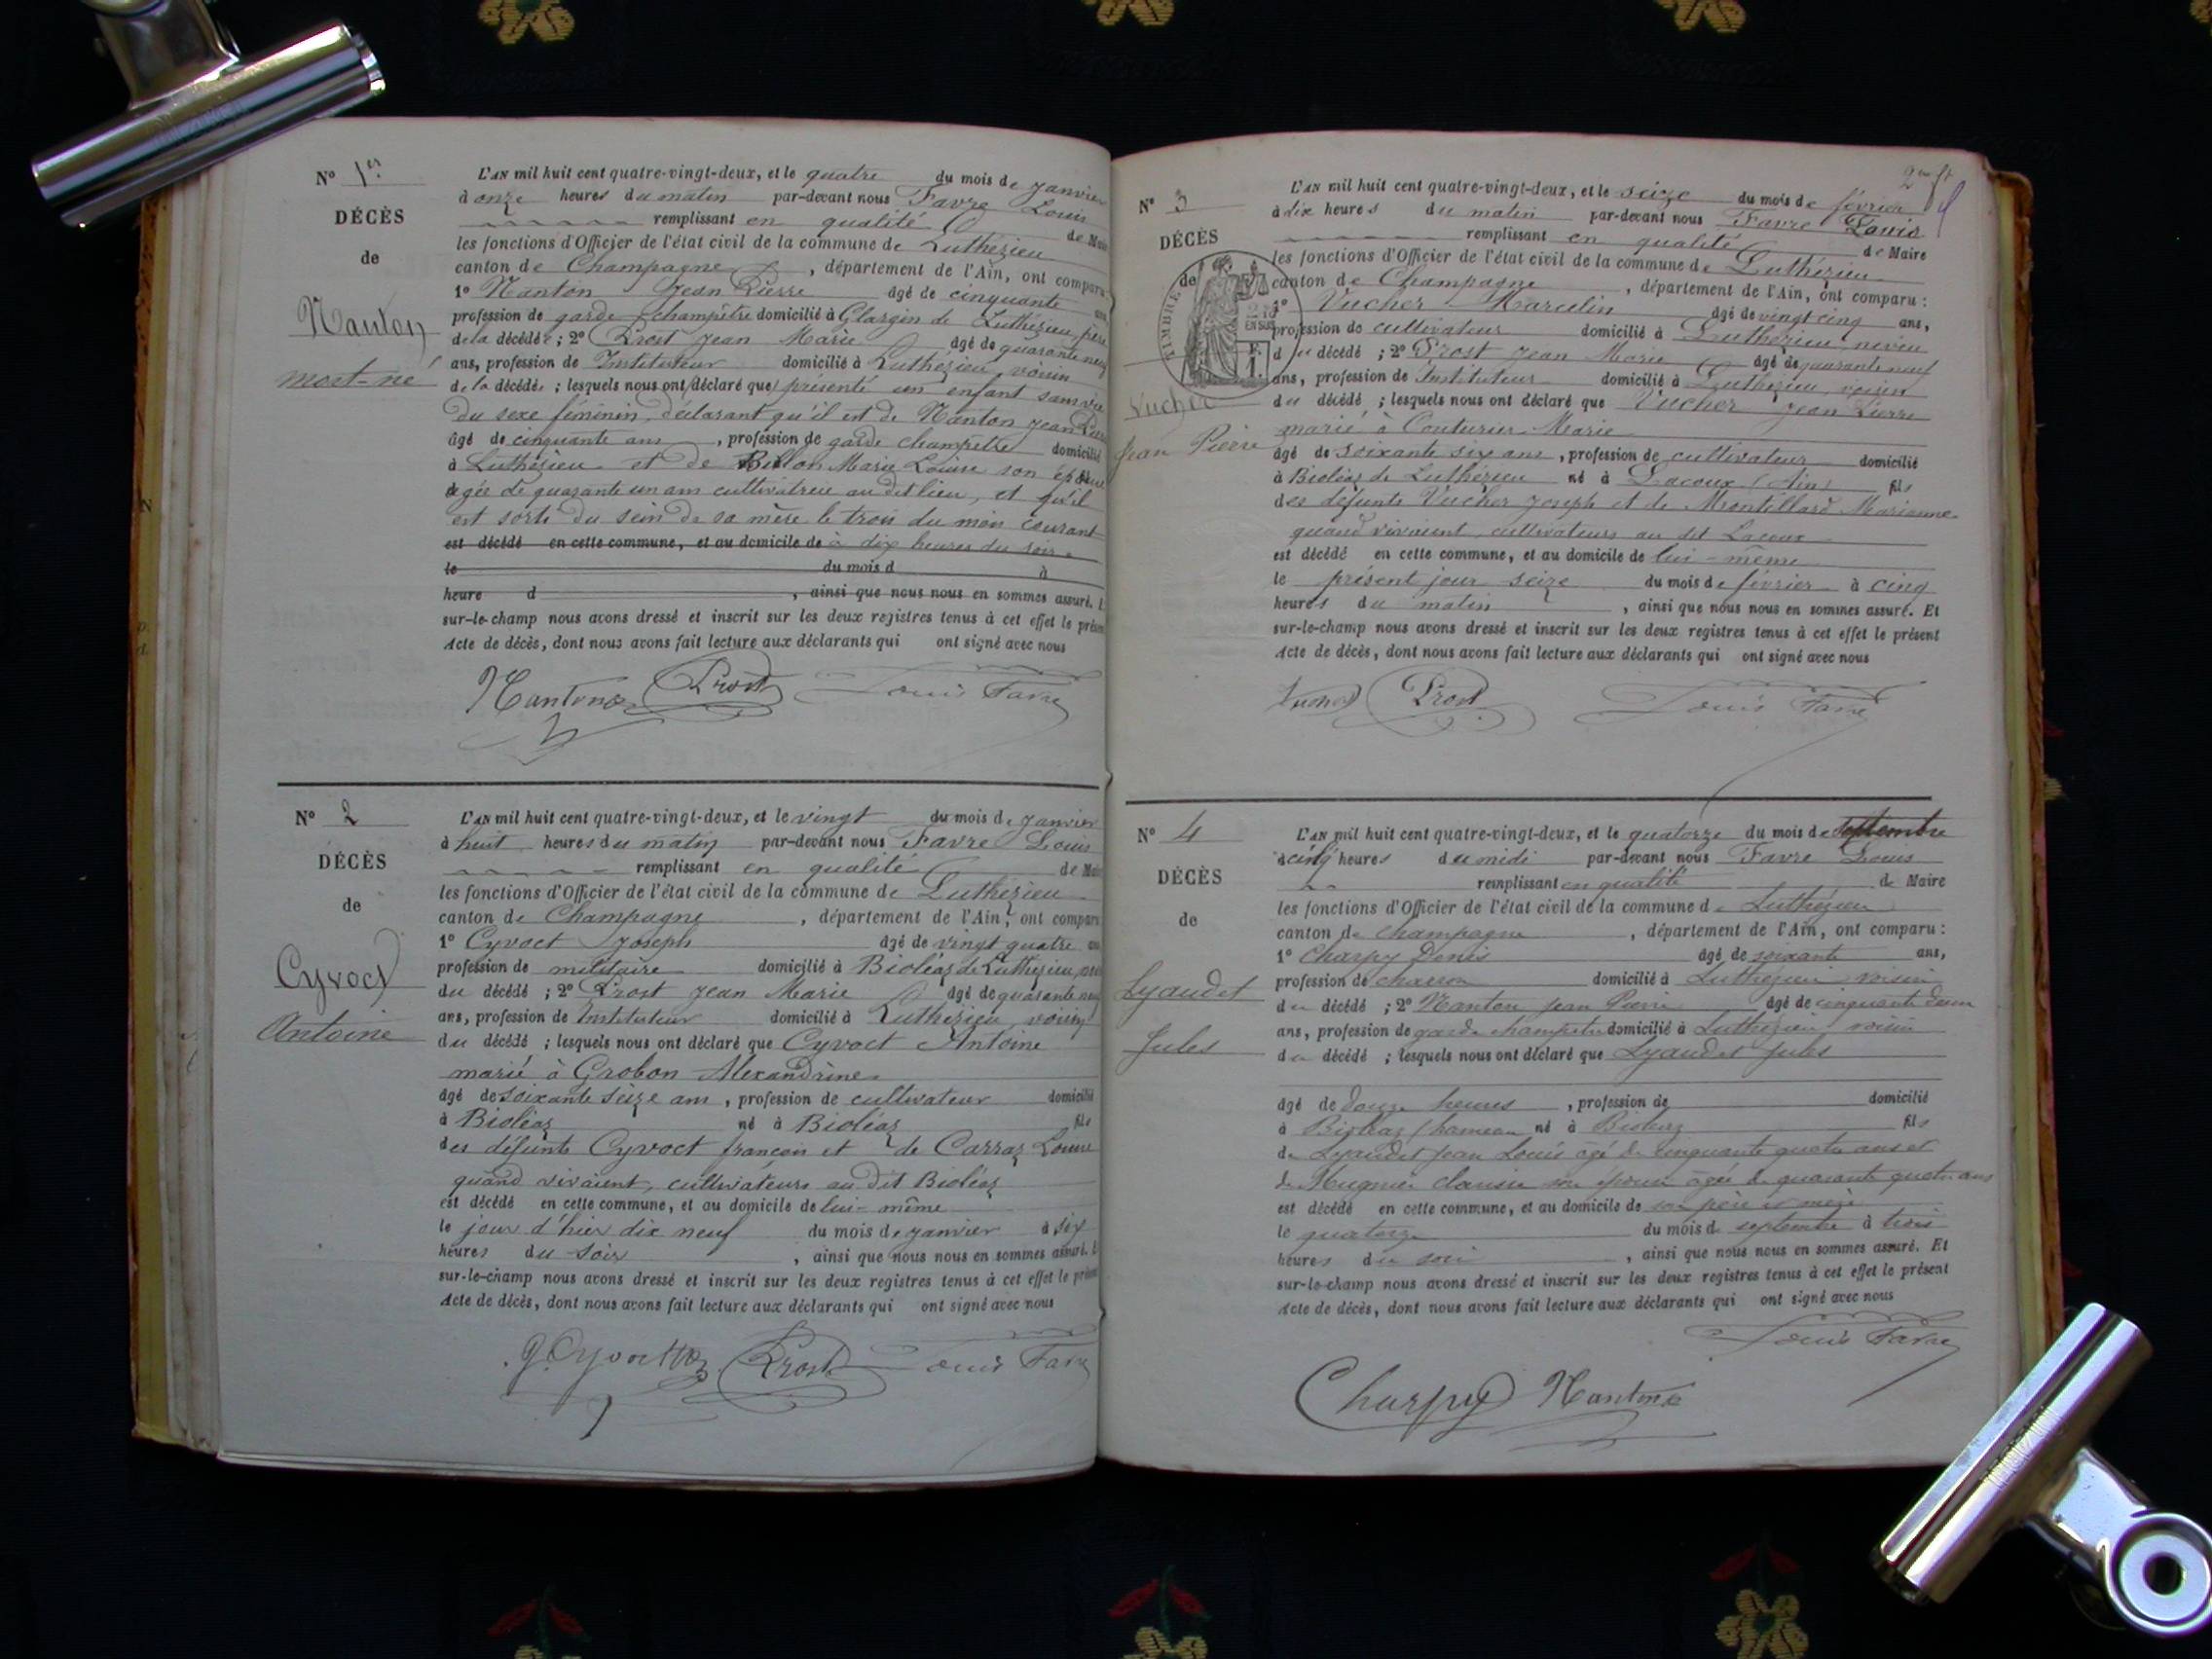 N° 1er
DÉCÈS
de
Nanton
mort-né
L'AN mil huit cent quatre-vingt-deux, et le quatre du mois de janvier
à onze heures du matin par-devant nous Favre Louis
remplissant en qualité de Maire
les fonctions d'Officier de l'état civil de la commune de Luthézieu
canton de Champagne, département de l'Ain, ont comparu:
1° Nanton Jean Pierre âgé de cinquante ans,
profession de garde champêtre domicilié à Glargin de Luthézieu, père
de la décédée; 2° Prost Jean Marie âgé de quarante neuf
ans, profession de Instituteur domicilié à Luthézieu, voisin
de la décédée; lesquels nous ont déclaré que présenté un enfant sans vie
du sexe féminin, déclarant qu'il est de Nanton Jean Pierre
âgé de cinquante ans, profession de garde champêtre domicilié
à Luthézieu et de Billon Marie Louise son épouse
âgée de quarante un ans cultivatrice au dit lieu, et qu'il
est sorti du sein de sa mère le trois du mois courant
est décédé en cette commune, et au domicile de à dix heures du soir.
le du mois d à
heure d, ainsi que nous nous en sommes assuré. Et
sur-le-champ nous avons dressé et inscrit sur les deux registres tenus à cet effet le présent
Acte de décès, dont nous avons fait lecture aux déclarants qui ont signé avec nous
Nanton Prost Louis Favre
N° 2
DÉCÈS
de
Cyvoct
Antoine
L'AN mil huit cent quatre-vingt-deux, et le vingt du mois de janvier
à huit heures du matin par-devant nous Favre Louis
remplissant en qualité de Maire
les fonctions d'Officier de l'état civil de la commune de Luthézieu
canton de Champagne, département de l'Ain, ont comparu
1° Cyvoct Joseph âgé de vingt quatre ans
profession de militaire domicilié à Bioléaz de Luthézieu,
du décédé; 2° Prost Jean Marie âgé de quarante neuf
ans, profession de Instituteur domicilié à Luthézieu, voisin
du décédé; lesquels nous ont déclaré que Cyvoct Antoine
marié à Grobon Alexandrine
âgé de soixante seize ans, profession de cultivateur domicilié
à Bioléaz né à Bioléaz fils
des défunts Cyvoct françois et de Carraz Louise
quand vivaient, cultivateurs au dit Bioléaz
est décédé en cette commune, et au domicile de lui-même
le jour d'hier dix neuf du mois de janvier à six
heures du soir, ainsi que nous nous en sommes assuré. Et
sur-le-champ nous avons dressé et inscrit sur les deux registres tenus à cet effet le présent
Acte de décès, dont nous avons fait lecture aux déclarants qui ont signé avec nous
J. Cyvoct Prost Louis Favre
N° 3
DÉCÈS
de
TIMBRE
EN SUS
Vucher
Jean Pierre
L'AN mil huit cent quatre-vingt-deux, et le seize du mois de février
à dix heures du matin par-devant nous Favre Louis
remplissant en qualité de Maire
les fonctions d'Officier de l'état civil de la commune de Luthézieu
canton de Champagne, département de l'Ain, ont comparu:
1° Vucher Marcelin âgé de vingt cinq ans,
profession de cultivateur domicilié à Luthézieu, neveu
du décédé; 2° Prost Jean Marie âgé de quarante neuf
ans, profession de Instituteur domicilié à Luthézieu, voisin
du décédé; lesquels nous ont déclaré que Vucher Jean Pierre
marié à Couturier Marie
âgé de soixante six ans, profession de cultivateur domicilié
à Bioléaz de Luthézieu né à Lacoux (Ain) fils
des défunts Vucher Joseph et de Montillard Marianne
quand vivaient, cultivateurs au dit Lacoux
est décédé en cette commune, et au domicile de lui-même
le présent jour seize du mois de février à cinq
heures du matin, ainsi que nous nous en sommes assuré. Et
sur-le-champ nous avons dressé et inscrit sur les deux registres tenus à cet effet le présent
Acte de décès, dont nous avons fait lecture aux déclarants qui ont signé avec nous
Prost Louis Favre
N° 4
DÉCÈS
de
Lyaudet
Jules
L'AN mil huit cent quatre-vingt-deux, et le quatorze du mois de septembre
à cinq heures du midi par-devant nous Favre Louis
remplissant en qualité de Maire
les fonctions d'Officier de l'état civil de la commune de Luthézieu
canton de Champagne, département de l'Ain, ont comparu:
1° Charpy Denis âgé de soixante ans,
profession de charron domicilié à Luthézieu voisin
du décédé; 2° Nanton Jean Pierre âgé de cinquante deux
ans, profession de garde champêtre domicilié à Luthézieu voisin
du décédé; lesquels nous ont déclaré que Lyaudet Jules
âgé de douze heures, profession de domicilié
à Bioléaz (hameau né à Bioléaz fils
de Lyaudet Jean Louis âgé de cinquante quatre ans et
de Mugnier Clarisse son épouse âgée de quarante quatre ans
est décédé en cette commune, et au domicile de son père et mère
le quatorze du mois de septembre à trois
heures du soir, ainsi que nous nous en sommes assuré. Et
sur-le-champ nous avons dressé et inscrit sur les deux registres tenus à cet effet le présent
Acte de décès, dont nous avons fait lecture aux déclarants qui ont signé avec nous
Louis Favre
Charpy Nanton